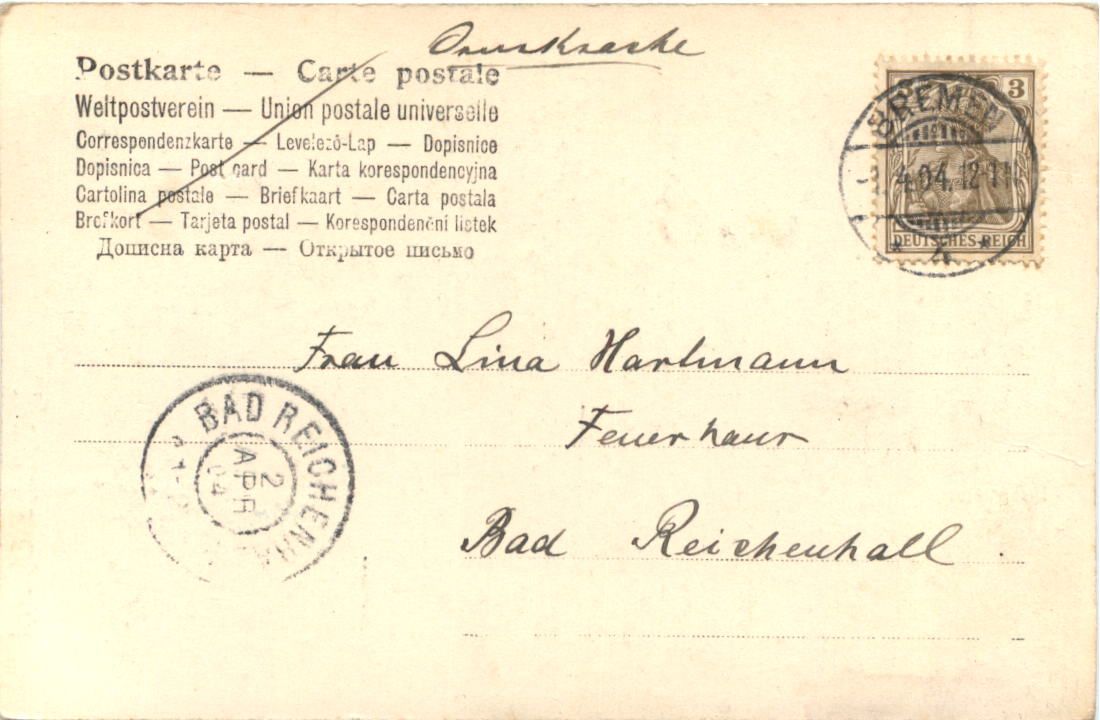 Drucksache
Postkarte — Carte postale
Weltpostverein — Union postale universelle
Correspondenzkarte — Levelező-Lap — Dopisnice
Dopisnica — Post card — Karta korespondencyjna
Cartolina postale — Briefkaart — Carta postala
Brefkort — Tarjeta postal — Korespondenční lístek
Дописна карта — Открытое письмо
3
BREMEN
4.04.12-1
* 4 *
DEUTSCHES REICH
Frau Lina Hartmann
Feuerhaus
Bad Reichenhall
BAD REICHENH
2
APR
04